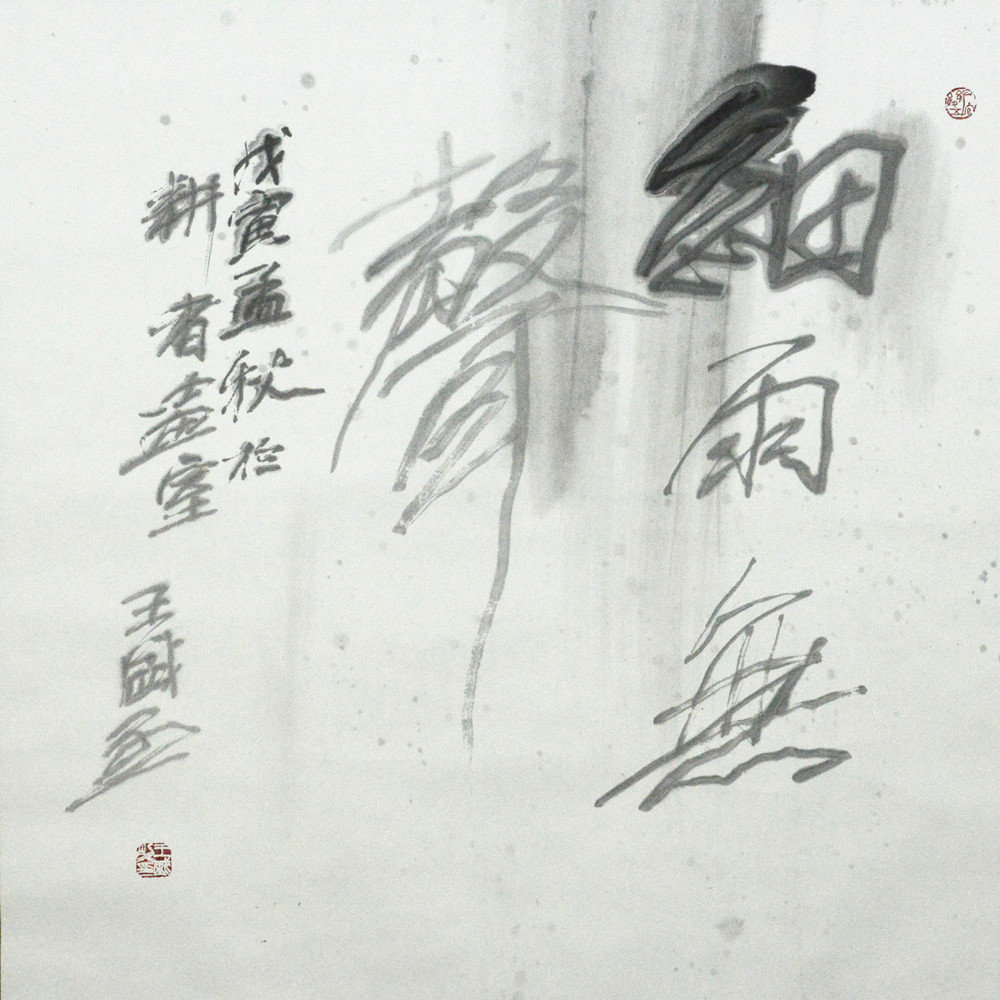 細雨無
聲
戊寅孟秋於
耕者室王國